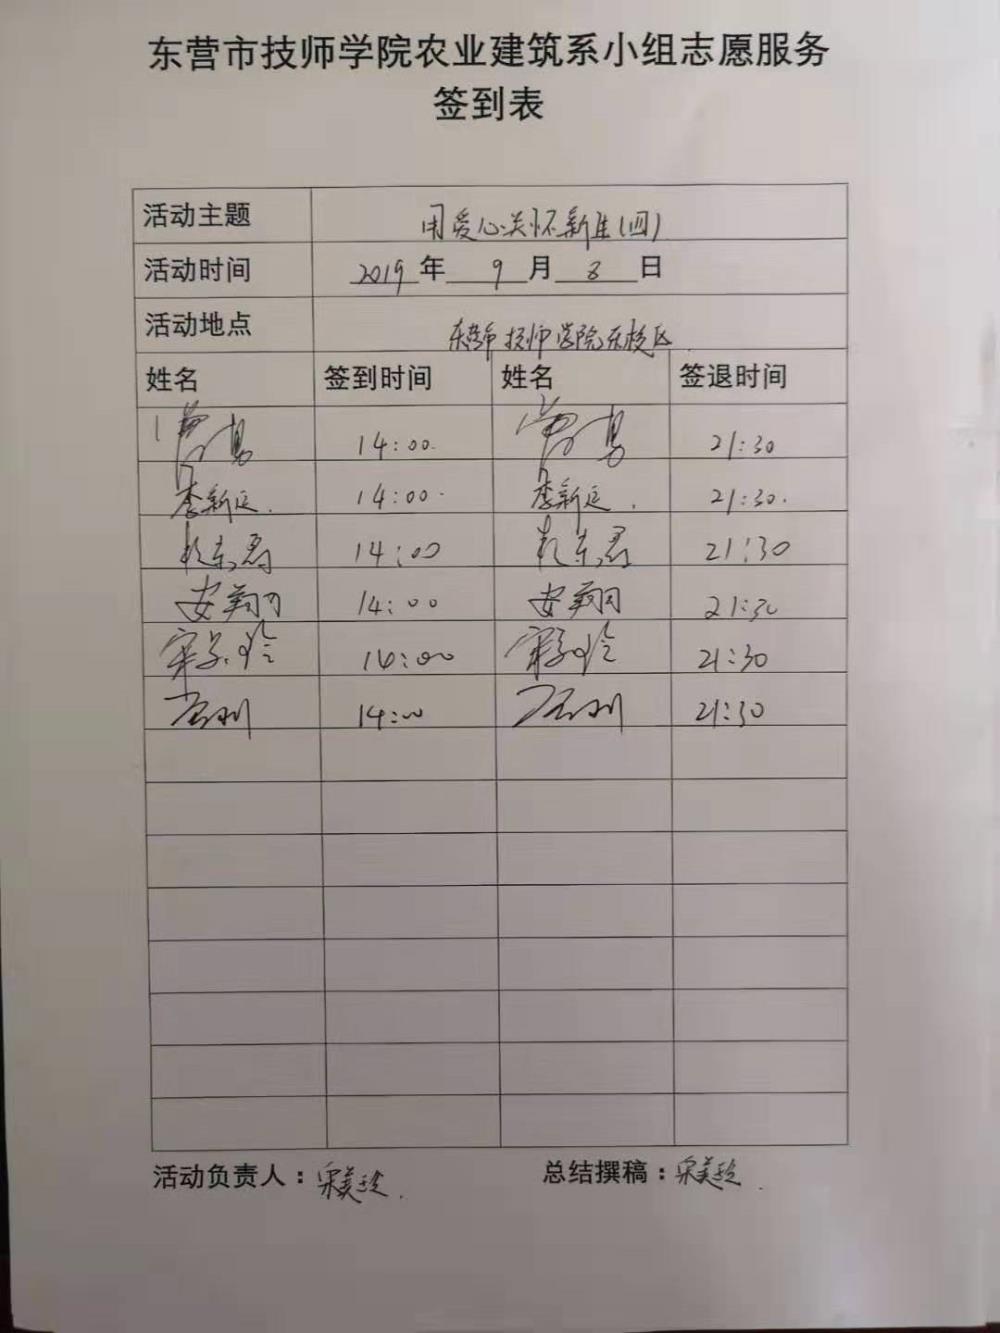 东营市技师学院农业建筑系小组志愿服务
签到表
活动主题 用爱心关怀新生(四)
活动时间 2019年 9月 8日
活动地点 东营市技师学院东校区
姓名 签到时间 姓名 签退时间
14:00 21:30
李新廷 14:00 李新廷 21:30
14:00 21:30
安翔 14:00 安翔 21:30
14:00 21:30
14:00 21:30
活动负责人:宋美玲 总结撰稿:宋美玲